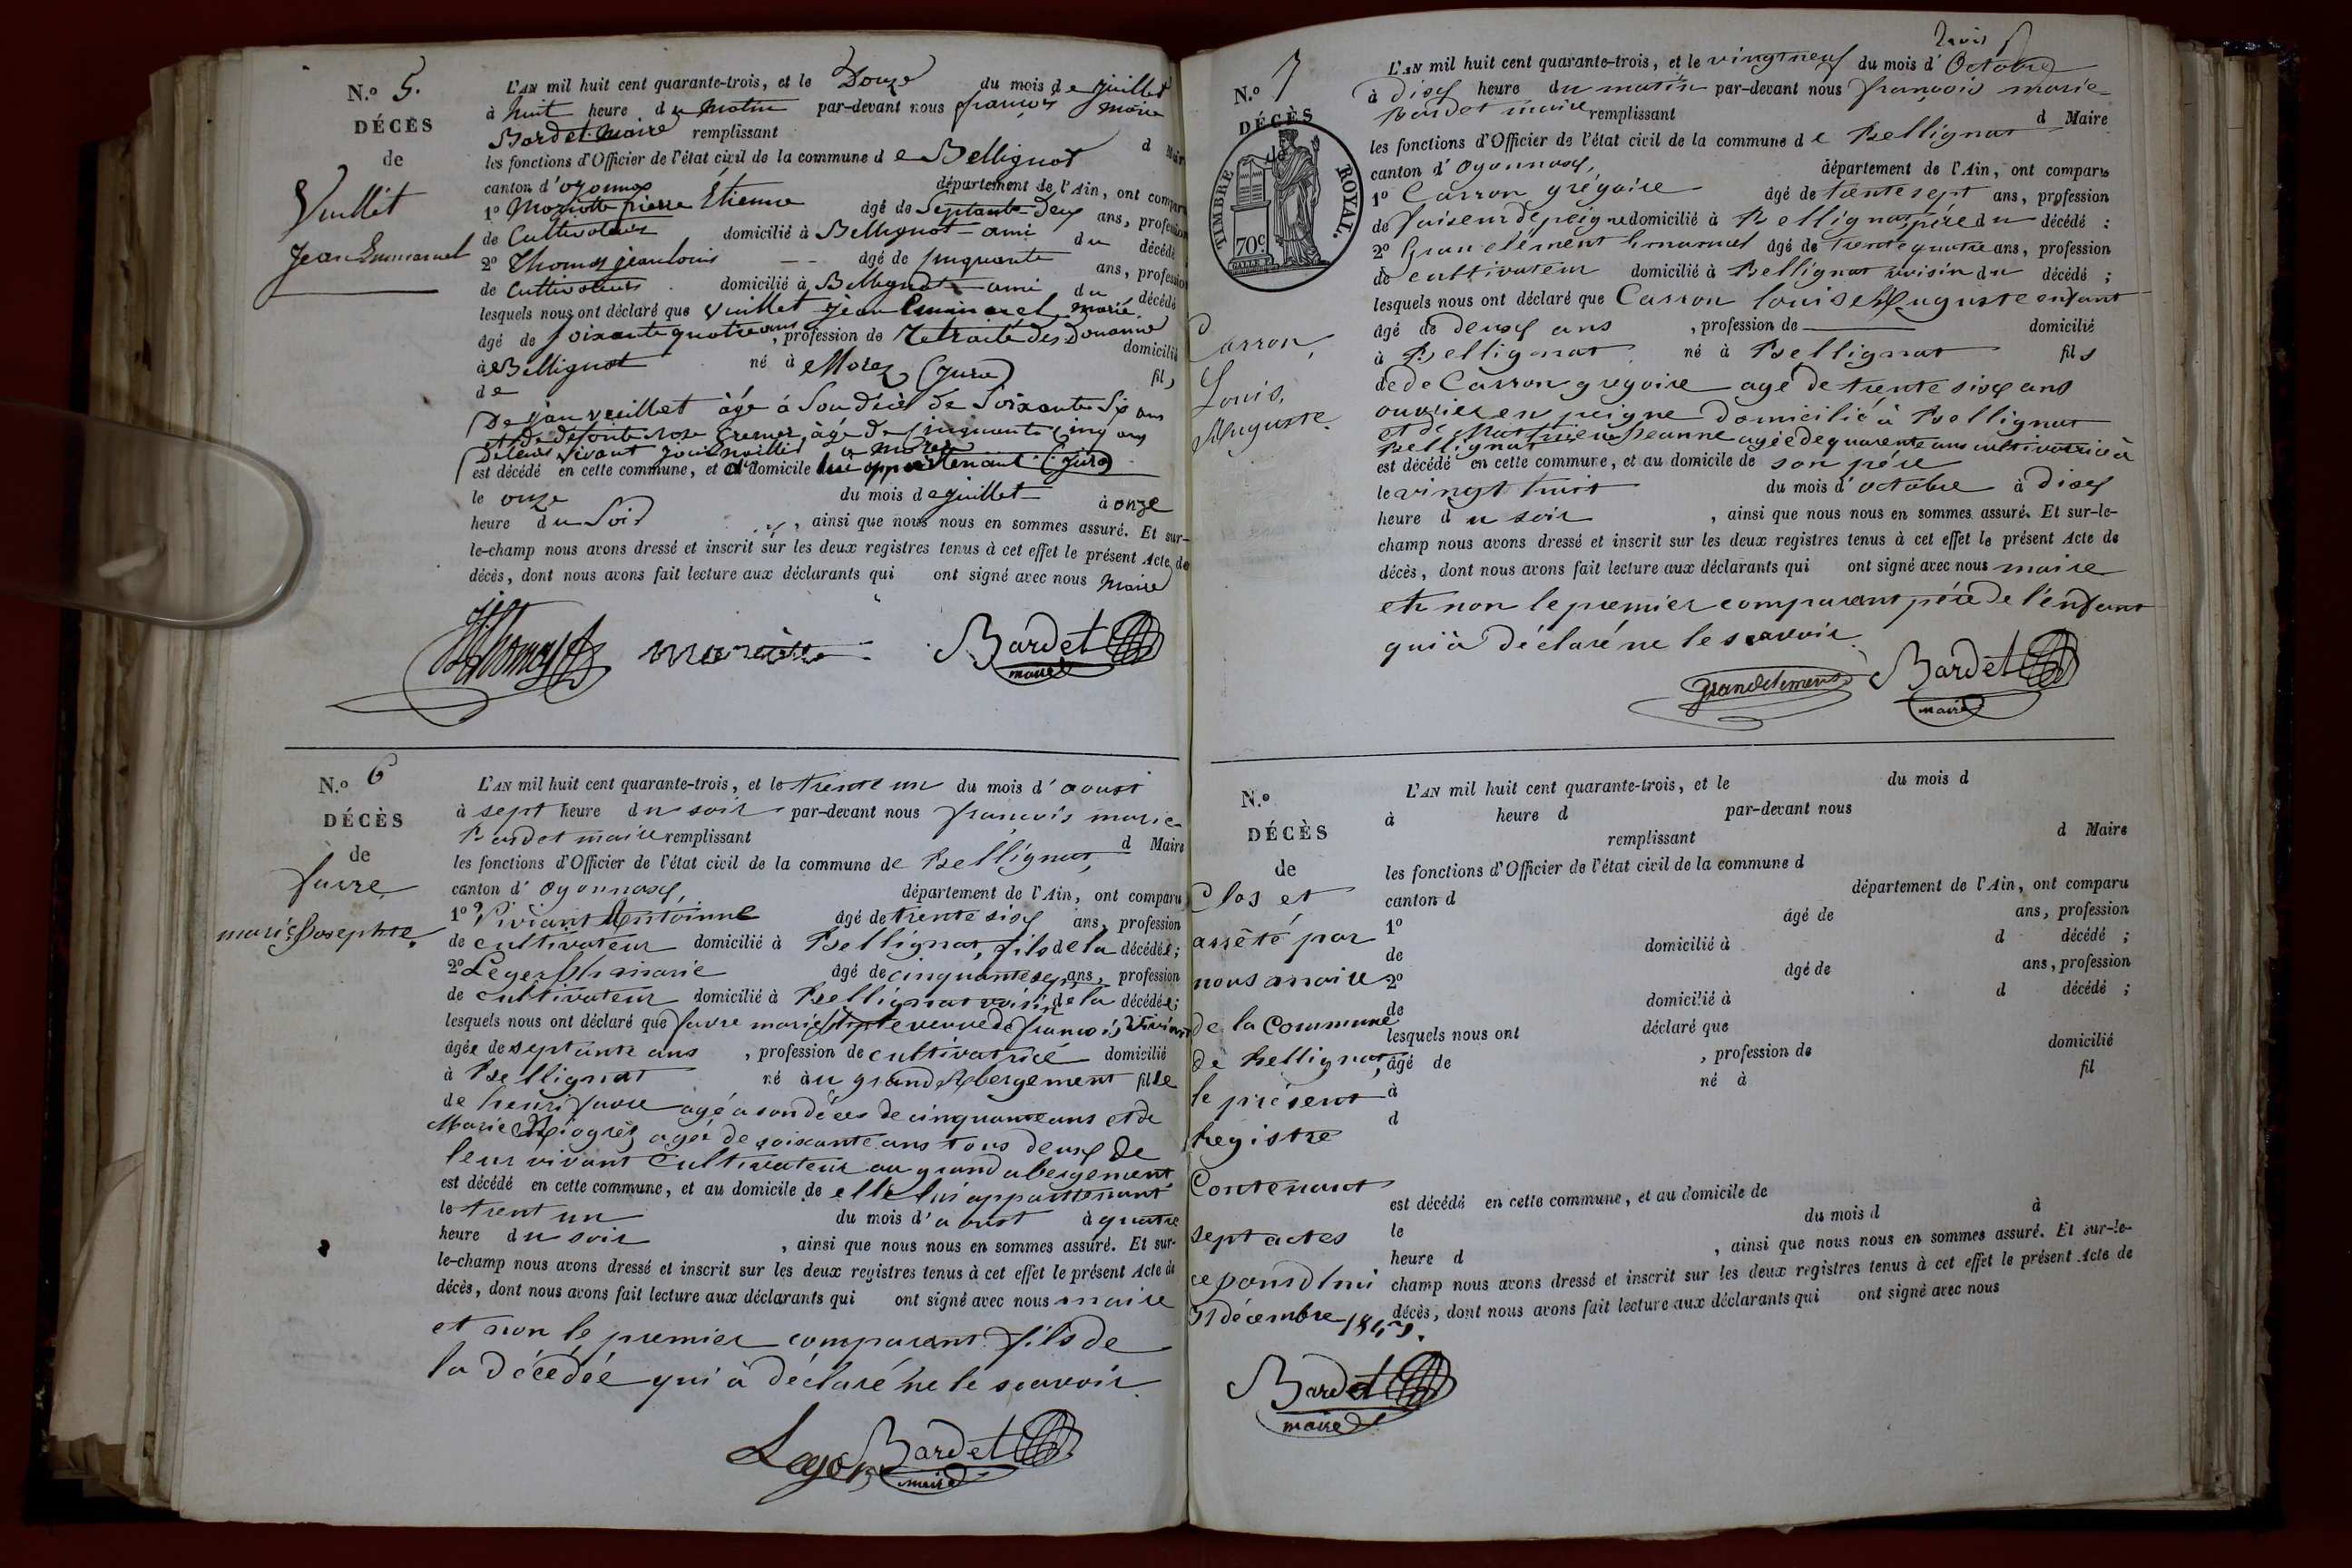 N.o 5.
DÉCÈS
de
Vuillet
Jean Emmanuel
L'AN mil huit cent quarante-trois, et le Douze du mois de juillet
à huit heure du matin par-devant nous françois marie
Bardet maire remplissant d Maire
les fonctions d'Officier de l'état civil de la commune de Bellignat
canton d'oyonnax département de l'Ain, ont comparu
1o Mariotte pierre Étienne âgé de Septante-Deux ans, profession
de Cultivateur domicilié à Bellignat ami du décédé
2o Thomas jean louis âgé de cinquante ans, profession
de Cultivateur domicilié à Bellignat ami du décédé
lesquels nous ont déclaré que Vuillet jean Emmanuel marié
âgé de soixante quatre ans, profession de Retraité des Douanne domicilié
à Bellignat né à Morez (Jura) fils
de
De jean vuillet âgé à Son décès de Soixante Six ans
et de défunte rose Cremer âgé de cinquante Cinq ans
De leurs vivant à morez
est décédé en cette commune, et au domicile lui appartenant (Jura)
le onze du mois de juillet à onze
heure du Soir, ainsi que nous nous en sommes assuré. Et sur-
le-champ nous avons dressé et inscrit sur les deux registres tenus à cet effet le présent Acte de
décès, dont nous avons fait lecture aux déclarants qui ont signé avec nous Maire
Thomas Bardet
maire
N.o 6
DÉCÈS
de
favre
marie Josephte.
L'AN mil huit cent quarante-trois, et le trente un du mois d'aoust
à sept heure du soir par-devant nous françois marie
Bardet maire remplissant d Maire
les fonctions d'Officier de l'état civil de la commune de Bellignat,
canton d'oyonnax, département de l'Ain, ont comparu
1o Viviant Antoinne âgé de trente six ans, profession
de cultivateur domicilié à Bellignat, fils de la décédée;
2o Leger marie âgé de cinquante sept ans, profession
de cultivateur domicilié à Bellignat voisin de la décédée;
lesquels nous ont déclaré que favre marie Josephte veuve de françois Viviant
âgée de septante ans, profession de cultivatrice domicilié
à Bellignat né au grand Abergement fille
de henri favre agé a son décès de cinquante ans et de
Marie agée de soixante ans tous deux de
leur vivant Cultivateur au grand abergement
est décédé en cette commune, et au domicile de elle lui appartenant
le trent un du mois d'aoust à quatre
heure du soir, ainsi que nous nous en sommes assuré. Et sur-
le-champ nous avons dressé et inscrit sur les deux registres tenus à cet effet le présent Acte de
décès, dont nous avons fait lecture aux déclarants qui ont signé avec nous maire
et non le premier comparant fils de
la décédée qui à déclaré ne le scavoir.
Leger Bardet
maire
N.o 7
DÉCÈS
TIMBRE ROYAL.
70c.
Carron,
Louis,
Auguste.
L'AN mil huit cent quarante-trois, et le vingt neuf du mois d'Octobre
à dix heure du matin par-devant nous françois marie
Bardet maire remplissant d Maire
les fonctions d'Officier de l'état civil de la commune de Bellignat
canton d'oyonnax, département de l'Ain, ont comparu
1o Carron grégoire âgé de trente sept ans, profession
de faiseur de peigne domicilié à Bellignat, père du décédé :
2o Gran clément Emmanuel âgé de trente quatre ans, profession
de cultivateur domicilié à Bellignat voisin du décédé ;
lesquels nous ont déclaré que Carron louis Auguste enfant
âgé de deux ans, profession de domicilié
à Bellignat né à Bellignat fils
de de Carron gregoire agé de trente six ans
ouvrier en peigne domicilié à Bellignat
et de Jeanne agée de quarente ans cultivatrice à
Bellignat
est décédé en cette commune, et au domicile de son père
le vingt huit du mois d'octobre à dix
heure du soir, ainsi que nous nous en sommes assuré. Et sur-le-
champ nous avons dressé et inscrit sur les deux registres tenus à cet effet le présent Acte de
décès, dont nous avons fait lecture aux déclarants qui ont signé avec nous maire
et non le premier comparant père de l'enfant
qui à déclaré ne le scavoir.
Grandclement Bardet
maire
N.o
DÉCÈS
de
Clos et
arrêté par
nous maire
de la Commune
de Bellignat,
le présent
Registre
Contenant
sept actes
ce jourd'hui
31 décembre 1843.
Bardet
maire
L'AN mil huit cent quarante-trois, et le du mois d
à heure d par-devant nous
remplissant d Maire
les fonctions d'Officier de l'état civil de la commune d
canton d département de l'Ain, ont comparu
1o âgé de ans, profession
de domicilié à d décédé ;
2o âgé de ans, profession
de domicilié à d décédé ;
lesquels nous ont déclaré que
âgé de, profession de domicilié
à né à fil
d
est décédé en cette commune, et au domicile de
le du mois d à
heure d, ainsi que nous nous en sommes assuré. Et sur-le-
champ nous avons dressé et inscrit sur les deux registres tenus à cet effet le présent Acte de
décès, dont nous avons fait lecture aux déclarants qui ont signé avec nous